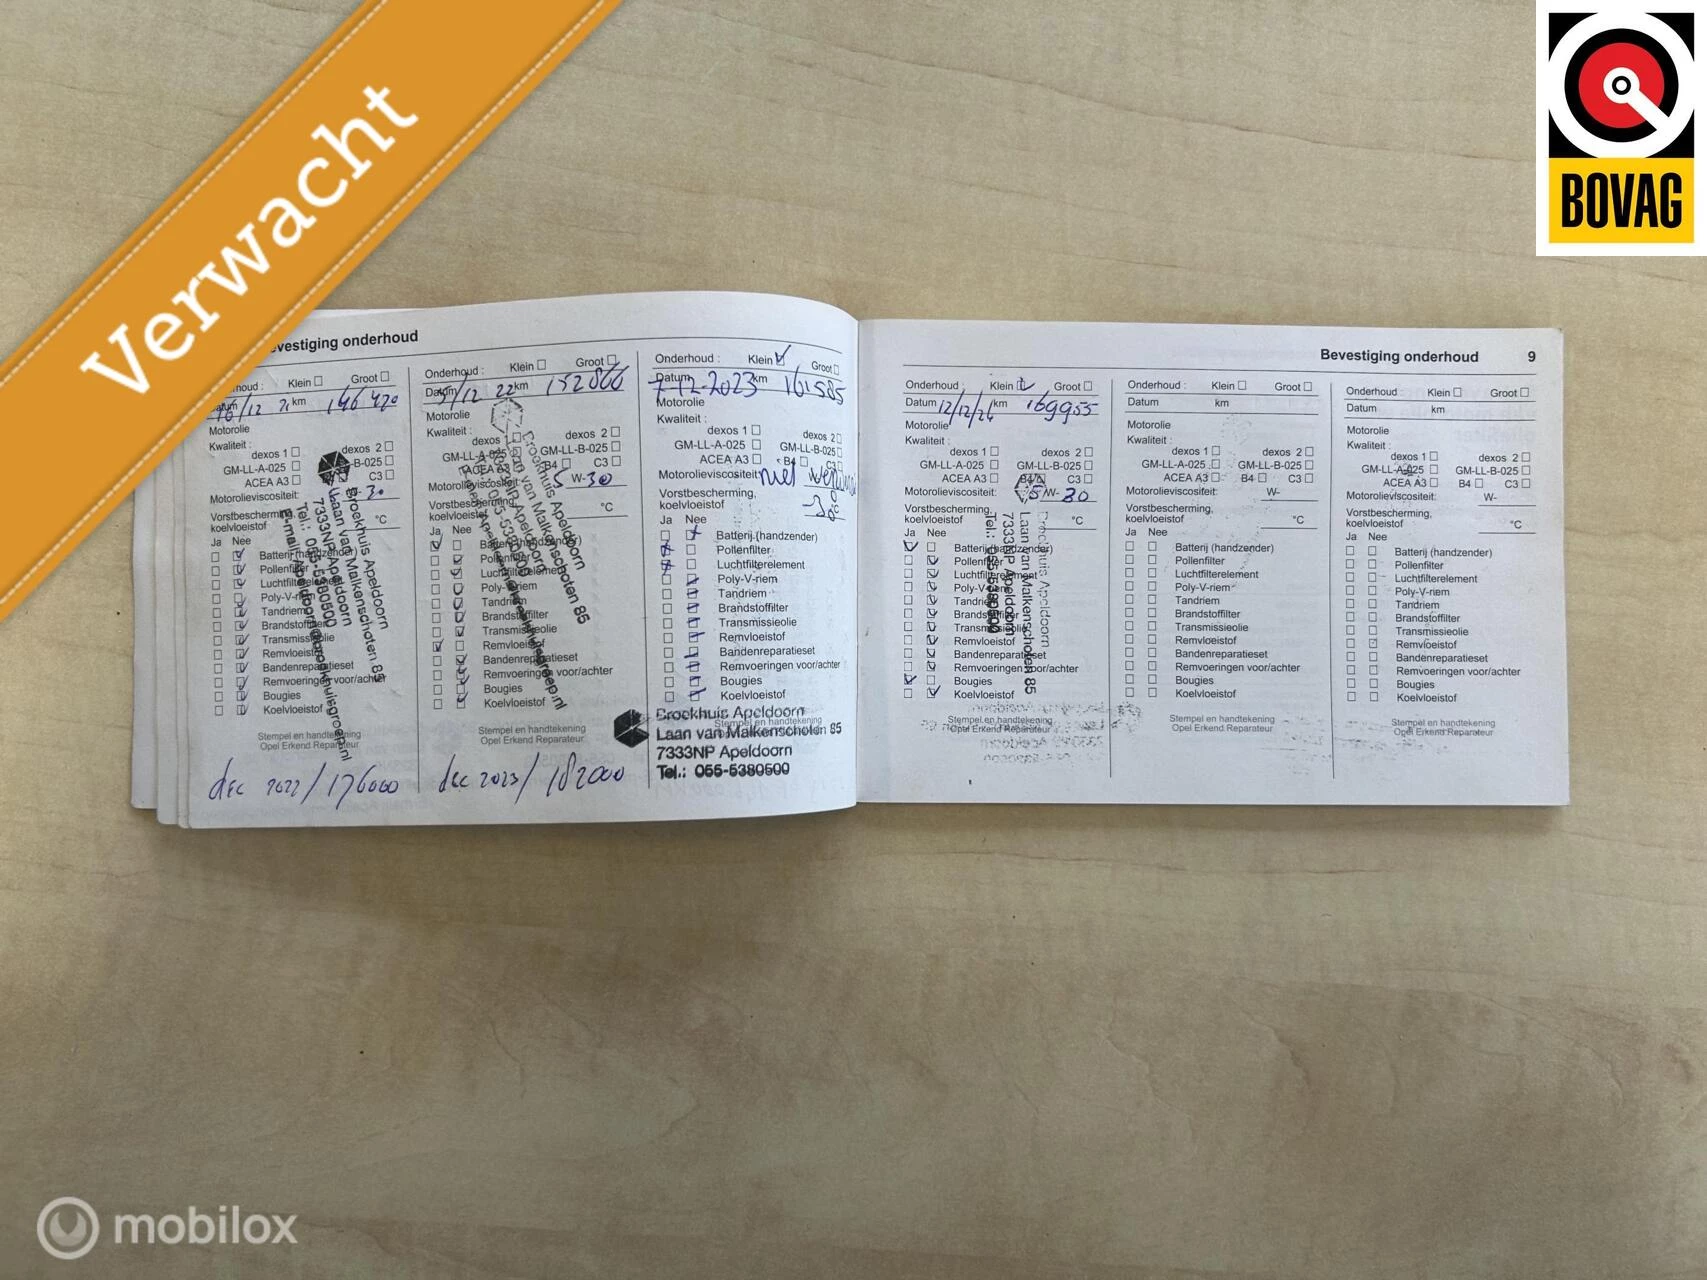 Verwacht
BOVAG
Bevestiging onderhoud
Klein Groot
16/12 21 km 146 420
Motorolie
Kwaliteit :
dexos 1 dexos 2
GM-LL-A-025 B-025
ACEA A3 C3
Motorolieviscositeit: W- 30
Vorstbescherming,
koelvloeistof °C
Ja Nee
Batterij (handzender)
Pollenfilter
Luchtfilterelement
Poly-V-riem
Tandriem
Brandstoffilter
Transmissieolie
Remvloeistof
Bandenreparatieset
Remvoeringen voor/achter
Bougies
Koelvloeistof
Stempel en handtekening
Opel Erkend Reparateur
Broekhuis Apeldoorn
Laan van Malkenschoten 85
7333NP Apeldoorn
Tel.: 055-5380500
dec 2022 / 176000
Onderhoud : Klein Groot
Datum 12 22 km
Motorolie
Kwaliteit :
dexos 1 dexos 2
GM-LL-A-025 GM-LL-B-025
ACEA A3 B4 C3
Motorolieviscositeit: 5 W- 30
Vorstbescherming,
koelvloeistof °C
Ja Nee
Batterij (handzender)
Pollenfilter
Luchtfilterelement
Poly-V-riem
Tandriem
Brandstoffilter
Transmissieolie
Remvloeistof
Bandenreparatieset
Remvoeringen voor/achter
Bougies
Koelvloeistof
Stempel en handtekening
Opel Erkend Reparateur
Broekhuis Apeldoorn
Laan van Malkenschoten 85
dec 2023 / 182000
Onderhoud : Klein Groot
Datum 7-12-2023 km 161585
Motorolie
Kwaliteit :
dexos 1 dexos 2
GM-LL-A-025 GM-LL-B-025
ACEA A3 B4 C3
Motorolieviscositeit: niet
Vorstbescherming,
koelvloeistof -30 °C
Ja Nee
Batterij (handzender)
Pollenfilter
Luchtfilterelement
Poly-V-riem
Tandriem
Brandstoffilter
Transmissieolie
Remvloeistof
Bandenreparatieset
Remvoeringen voor/achter
Bougies
Koelvloeistof
Stempel en handtekening
Broekhuis Apeldoorn
Laan van Malkenschoten 85
7333NP Apeldoorn
Tel.: 055-5380500
Bevestiging onderhoud 9
Onderhoud : Klein Groot
Datum 12/12/24 km 169955
Motorolie
Kwaliteit :
dexos 1 dexos 2
GM-LL-A-025 GM-LL-B-025
ACEA A3 B4 C3
Motorolieviscositeit: 5 W- 30
Vorstbescherming,
koelvloeistof °C
Ja Nee
Batterij (handzender)
Pollenfilter
Luchtfilterelement
Poly-V-riem
Tandriem
Brandstoffilter
Transmissieolie
Remvloeistof
Bandenreparatieset
Remvoeringen voor/achter
Bougies
Koelvloeistof
Stempel en handtekening
Opel Erkend Reparateur
Broekhuis Apeldoorn
Laan van Malkenschoten 85
7333NP Apeldoorn
Tel.: 055-5380500
Onderhoud : Klein Groot
Datum km
Motorolie
Kwaliteit :
dexos 1 dexos 2
GM-LL-A-025 GM-LL-B-025
ACEA A3 B4 C3
Motorolieviscositeit: W-
Vorstbescherming,
koelvloeistof °C
Ja Nee
Batterij (handzender)
Pollenfilter
Luchtfilterelement
Poly-V-riem
Tandriem
Brandstoffilter
Transmissieolie
Remvloeistof
Bandenreparatieset
Remvoeringen voor/achter
Bougies
Koelvloeistof
Stempel en handtekening
Opel Erkend Reparateur
Onderhoud : Klein Groot
Datum km
Motorolie
Kwaliteit :
dexos 1 dexos 2
GM-LL-A-025 GM-LL-B-025
ACEA A3 B4 C3
Motorolieviscositeit: W-
Vorstbescherming,
koelvloeistof °C
Ja Nee
Batterij (handzender)
Pollenfilter
Luchtfilterelement
Poly-V-riem
Tandriem
Brandstoffilter
Transmissieolie
Remvloeistof
Bandenreparatieset
Remvoeringen voor/achter
Bougies
Koelvloeistof
Stempel en handtekening
Opel Erkend Reparateur
mobilox